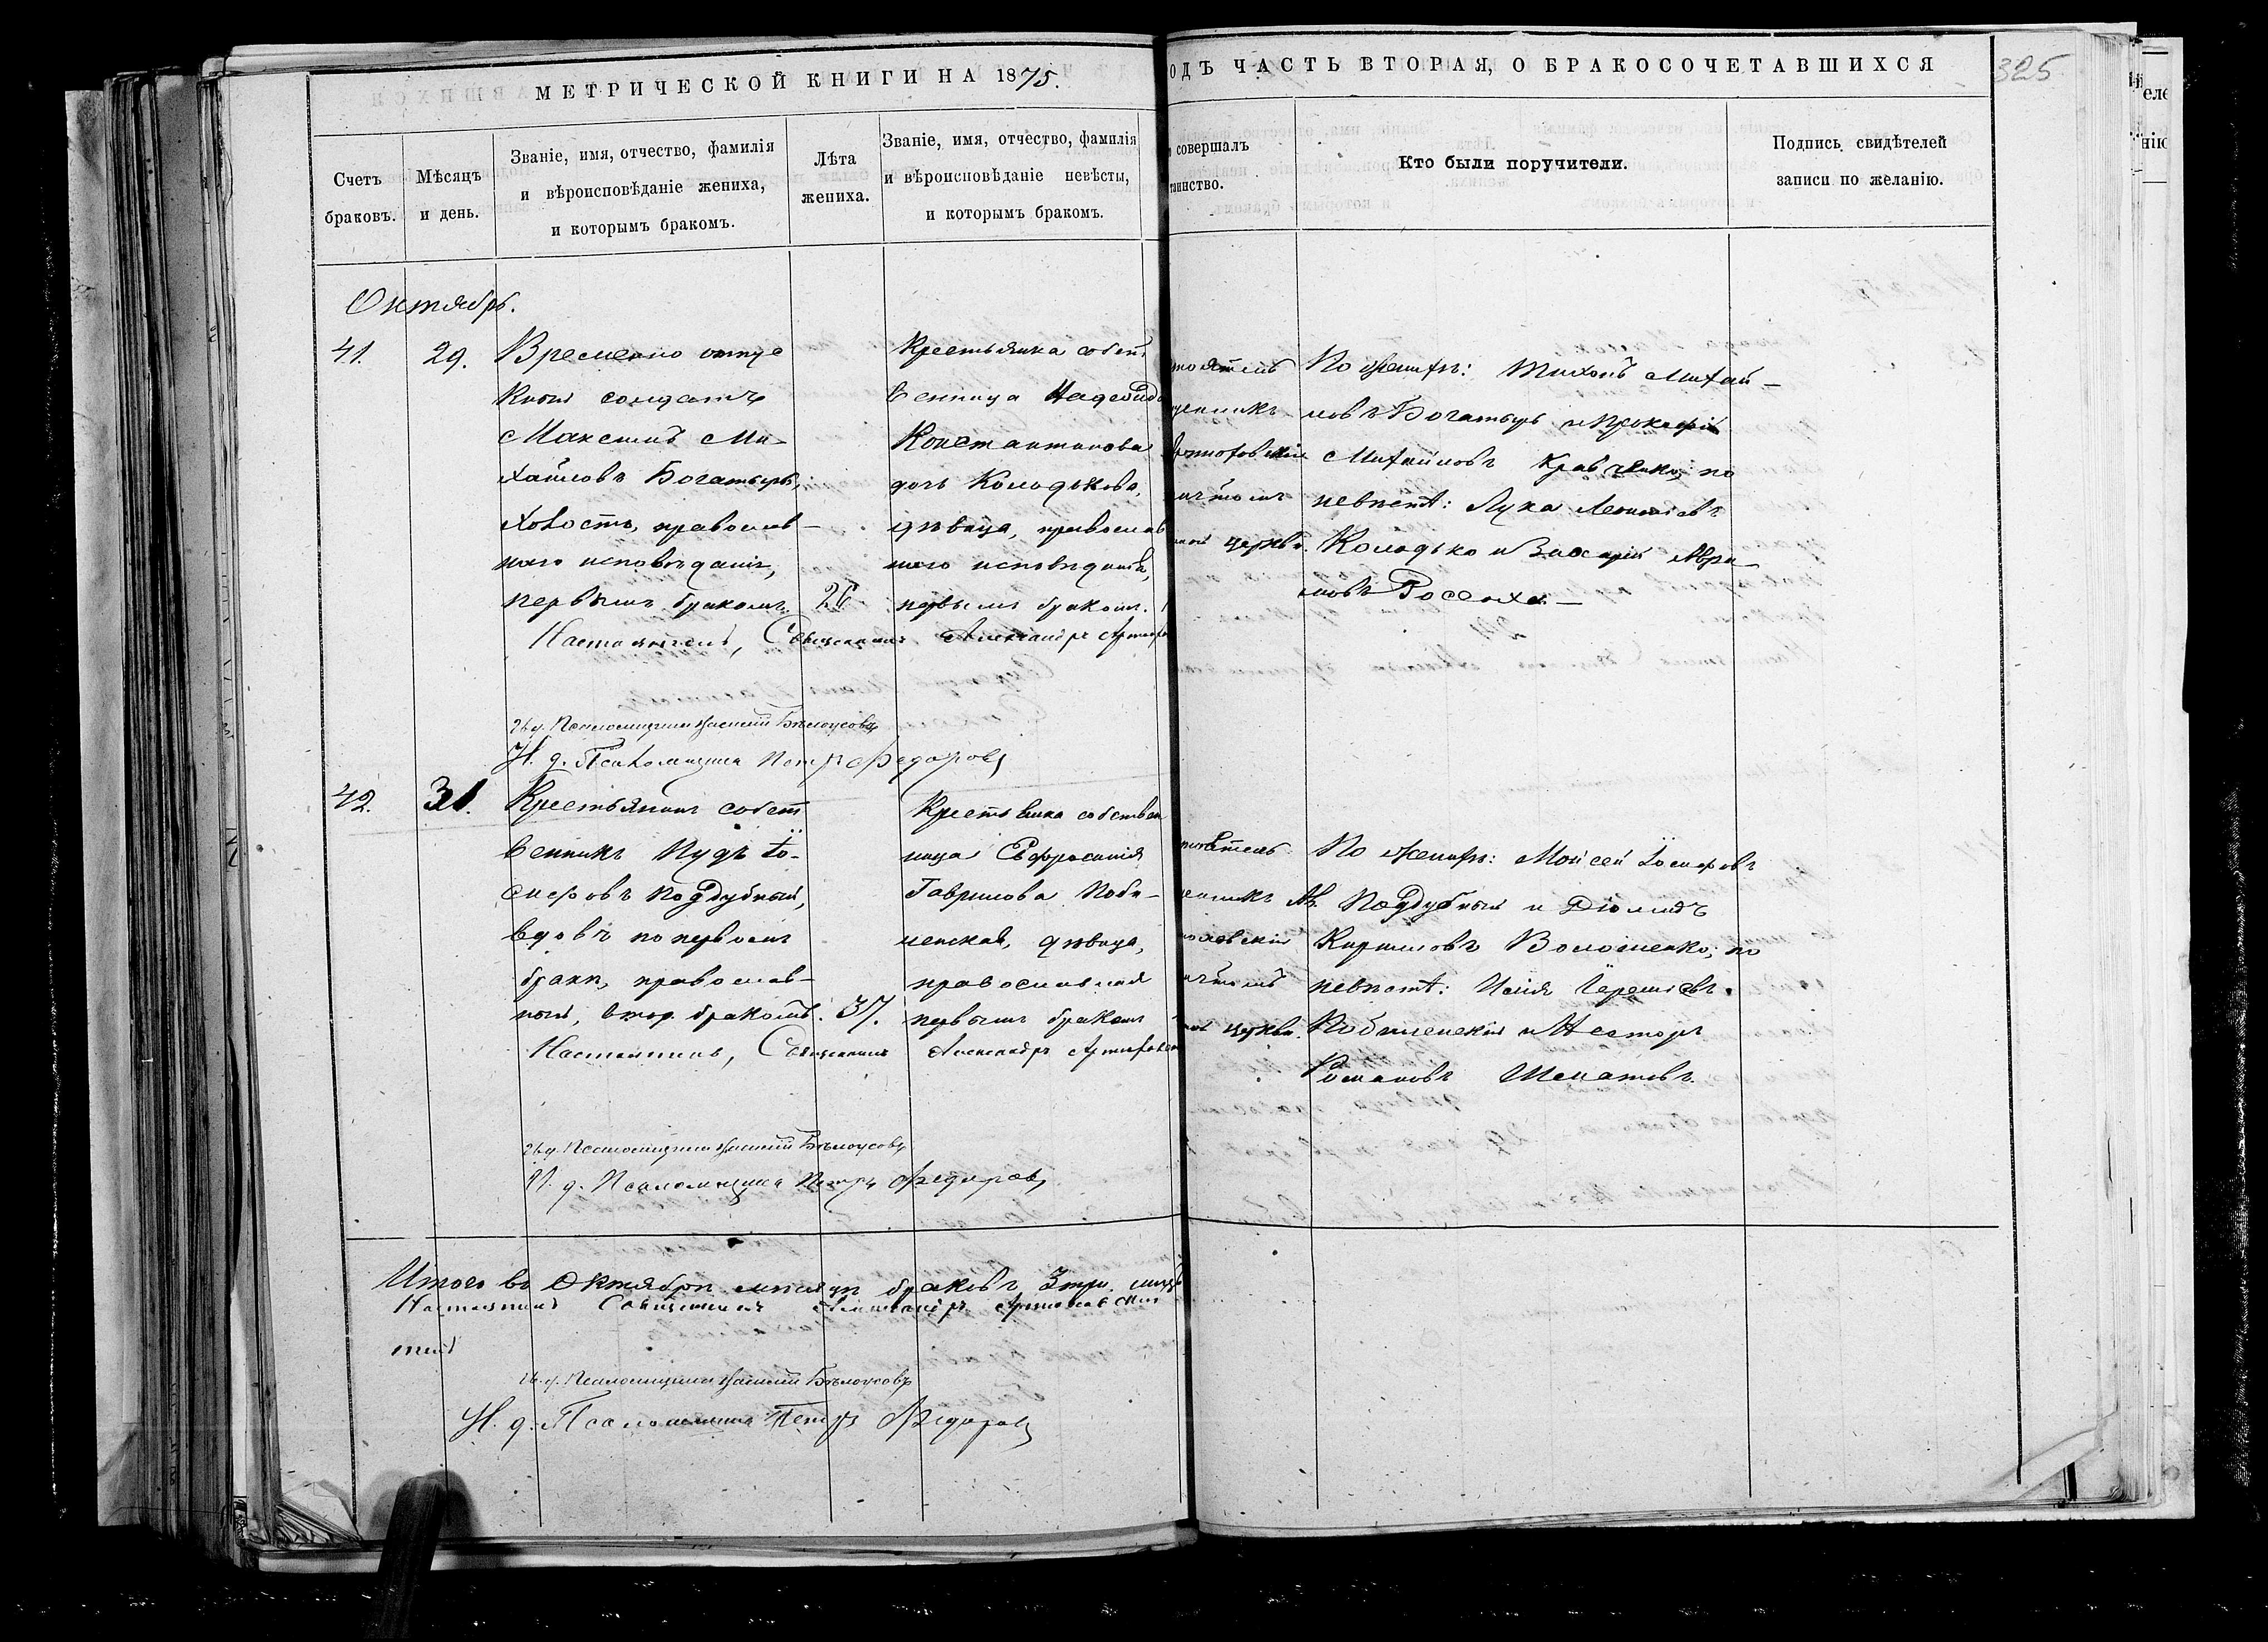 МЕТРИЧЕСКОЙ КНИГИ НА 1875.
ОДЪ ЧАСТЬ ВТОРАЯ, О БРАКОСОЧЕТАВШИХСЯ
325
Счетъ браковъ.
Мѣсяцъ и день.
Званіе, имя, отчество, фамилія
и вѣроисповѣданіе жениха,
и которымъ бракомъ.
Лѣта
жениха.
Званіе, имя, отчество, фамилія
и вѣроисповѣданіе невѣсты,
и которымъ бракомъ.
совершалъ
таинство.
Кто были поручители.
Подпись свидѣтелей
записи по желанію.
Октябрь.
41.
29.
Временно отпус
кной солдатъ
Максимъ Ми-
хайловъ Богатырь,
холостъ, православ-
наго исповѣданія,
первымъ бракомъ.
26
Крестьянка собст
венница Надежда
Константинова
дочь Колодькова,
дѣвица, православ
наго исповѣданія,
первымъ бракомъ.
церкви.
По женихѣ: Тихонъ Михай-
ловъ Богатырь и Прокофій
Михайловъ Кравченко; по
невѣстѣ: Лука Леонтіевъ
Колодько и Захарій Авра-
мовъ Россоха.
Настоятель, Священникъ Александръ
И. д. Псаломщика Василій Бѣлоусовъ
И. д. Псаломщика Петръ Федоровъ
42.
31.
Крестьянинъ собст
венникъ Пудъ Іо-
сифовъ Поддубный,
вдовъ по первомъ
бракѣ, православ-
ный, втор. бракомъ.
37.
Крестьянка собствен
ница Евфросинія
Гаврилова Поби-
ленская, дѣвица,
православная
первымъ бракомъ
церкви.
По женихѣ: Моисей Іосифовъ
Поддубный и Діомидъ
Кириловъ Волошенко; по
невѣстѣ: Илія Іереміевъ
Побиленскій и Несторъ
Романовъ Шематовъ.
Настоятель, Священникъ Александръ
И. д. Псаломщика Василій Бѣлоусовъ
И. д. Псаломщика Петръ Федоровъ
Итого въ Октябрѣ мѣсяцѣ браковъ 3 три
Настоятель Священникъ Александръ
И. д. Псаломщика Василій Бѣлоусовъ
И. д. Псаломщика Петръ Федоровъ